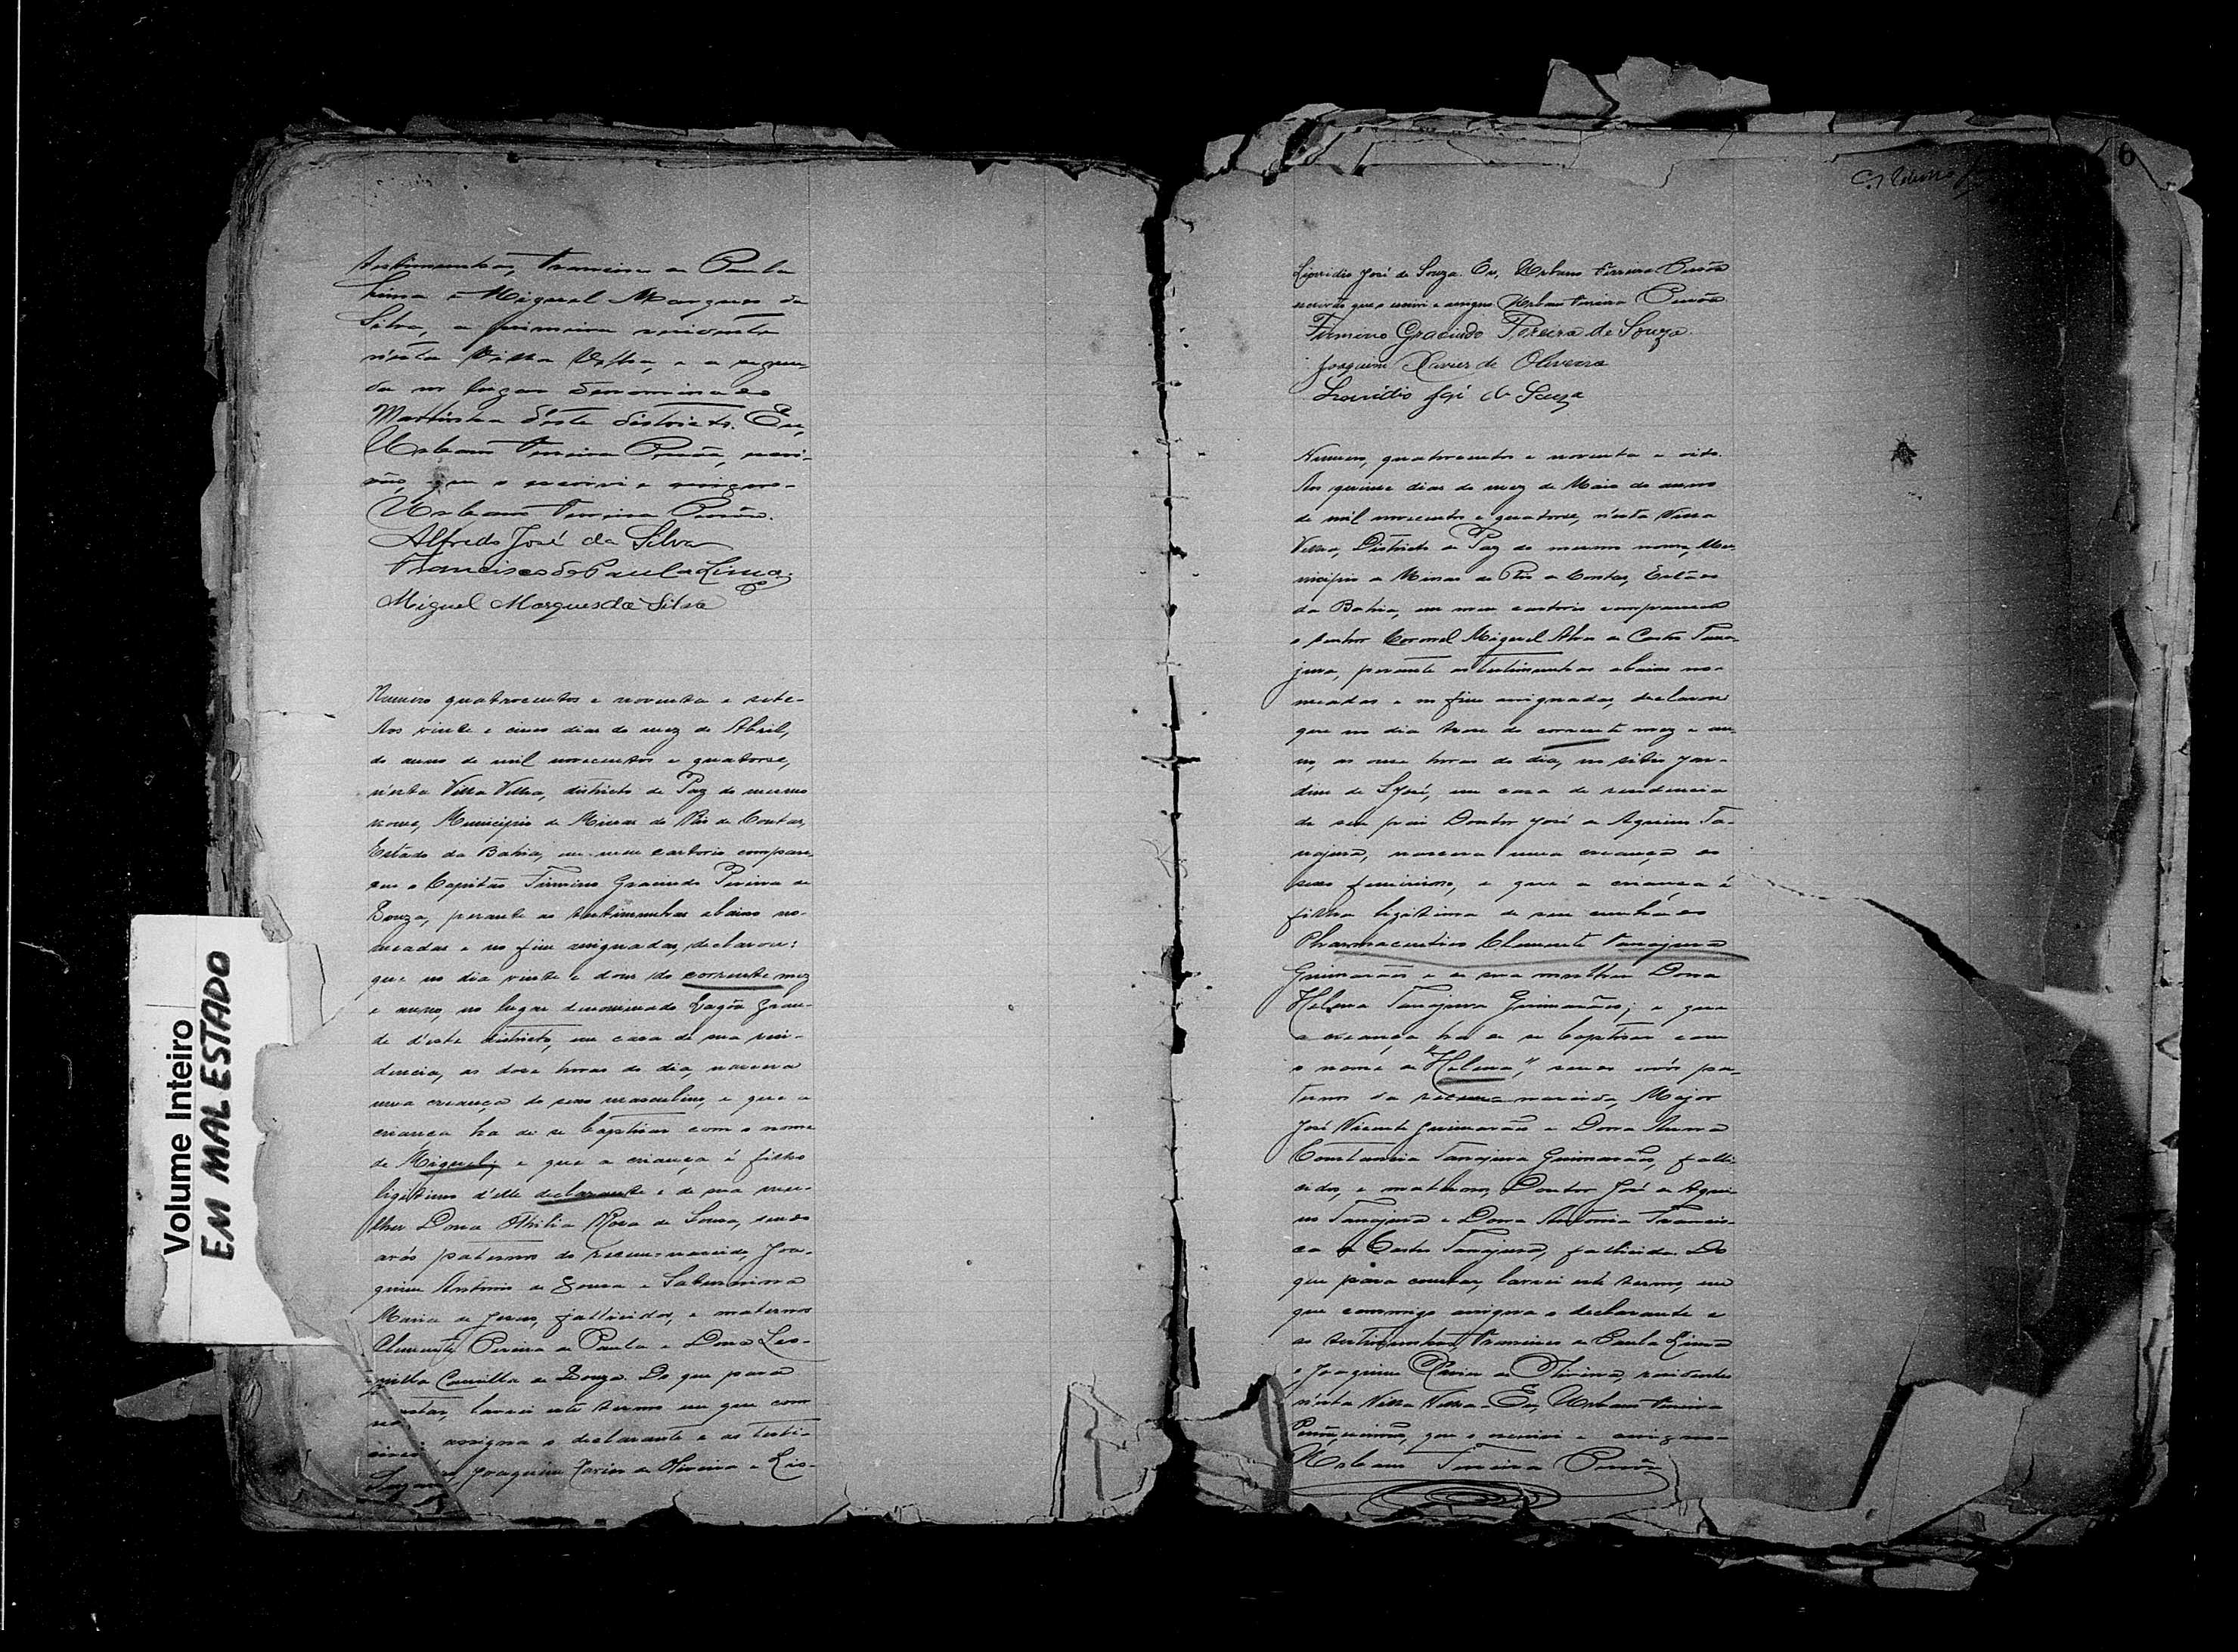 testimunhas, Francisco de Paula
Lima e Miguel Marques da
Silva, o primeiro residente
n'esta Villa Velha, e o segun-
do no lugar denominado
d'este districto. Eu,
Urbano Ferreira escri-
vão, que o escrevi e assigno.
Urbano Ferreira
Alfredo José da Silva
Francisco de Paula Lima
Miguel Marques da Silva
Numero quatrocentos e noventa e sete.
Aos vinte e cinco dias do mez de Abril,
do anno de mil novecentos e quatorse,
n'esta Villa Velha, districto de Paz do mesmo
nome, Municipio de Minas do Rio de Contas,
Estado da Bahia, em meu cartorio compare-
ceu o Capitão Firmino Gracindo Pereira de
Souza, perante as testimunhas abaixo no-
meadas e no fim assignadas, declarou:
que no dia vinte e dous do corrente mez
e anno, no lugar denominado Lagôa Gran-
de d'este districto, em casa de sua resi-
dencia, as dose horas do dia, nascera
uma creança do sexo masculino, e que a
creança ha de se baptisar com o nome
de Miguel; e que a criança é filho
legitimo d'elle declarante e de sua mu-
lher Dona Othilia Rosa de Souza, sendo
avós paternos do recem-nascido, Joa-
quim Antonio de Souza e Saturnina
Maria de Jesus, fallecidos, e maternos
Clemente Pereira de Paula e Dona Leo-
de Souza. Do que para
lavrei este termo em que com
assigna o declarante e as testi-
Joaquim Xavier de Oliveira e
6
José de Souza. Eu, Urbano Ferreira
escrivão que o escrevi e assigno. Urbano Ferreira
Firmino Gracindo Pereira de Souza
Joaquim Xavier de Oliveira
José de Souza
Numero, quatrocentos e noventa e oito.
Aos quinse dias do mez de Maio do anno
de mil novecentos e quatorse, n'esta Villa
Velha, Districto de Paz do mesmo nome, Mu-
nicipio de Minas do Rio de Contas, Estado
da Bahia, em meu cartorio compareceu
o senhor Coronel Miguel Alves de Castro Tana-
jura, perante as testimunhas abaixo no-
meadas e no fim assignadas, declarou
que no dia trese do corrente mez e an-
no, as onse horas do dia, no sitio Jar-
dim de S. José, em casa de residencia
de seu pai Doutor José de Aquino Ta-
najura, nascera uma creança do
sexo feminino, e que a criança é
filha legitima de seu cunhado
Pharmaceutico Clemente Tanajura
Guimarães e de sua mulher Dona
Helena Tanajura Guimarães; e que
a creança ha de se baptisar com
o nome de "Helena", sendo avós pa-
ternos da recem-nascida, Major
José Vicente Guimarães e Dona Anna
Constancia Tanajura Guimarães, falle-
cidos, e maternos, Doutor José de Aqui-
no Tanajura e Dona Antonia Francis-
ca de Castro Tanajura, fallecida. Do
que para constar, lavrei este termo, em
que commigo assigna o declarante e
as testimunhas Francisco de Paula Lima
e Joaquim Xavier de Oliveira, residentes
n'esta Villa Velha. Eu, Urbano Ferreira
escrivão, que o escrevi e assigno.
Urbano Ferreira
Volume Inteiro
EM MAL ESTADO